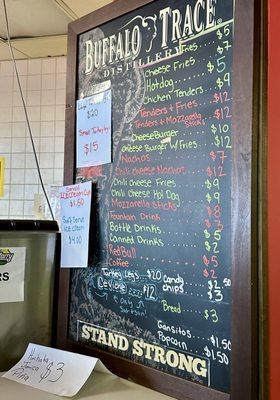 BUFFALO TRACE
DISTILLERY
Fries $5
Cheese Fries $7
Hotdog $5
Chicken Tenders $9
Tenders + Fries $12
Tenders + Mozzarella Sticks $12
Cheese Burger $10
Cheese Burger W/ Fries $12
Nachos $7
Chili Cheese Nachos
Chili Cheese Fries $9
Chili Cheese Hot Dog $9
Mozzarella Sticks $8
Fountain Drink $3
Bottle Drinks $5
Canned Drinks $2
Red Bull $5
Coffee $2
Turkey Legs $20
Ceviche $12
Only on
Candy $2
Chips $3
Bread $3
Gansitos $1.50
Popcorn $1.50
STAND STRONG
$20
Small Turkey leg
$15
Small
ICE Cream Cup
$1.50
Soft Serve
ICE Cream
$4.00
Horchata
Jamaica
Piña
$3